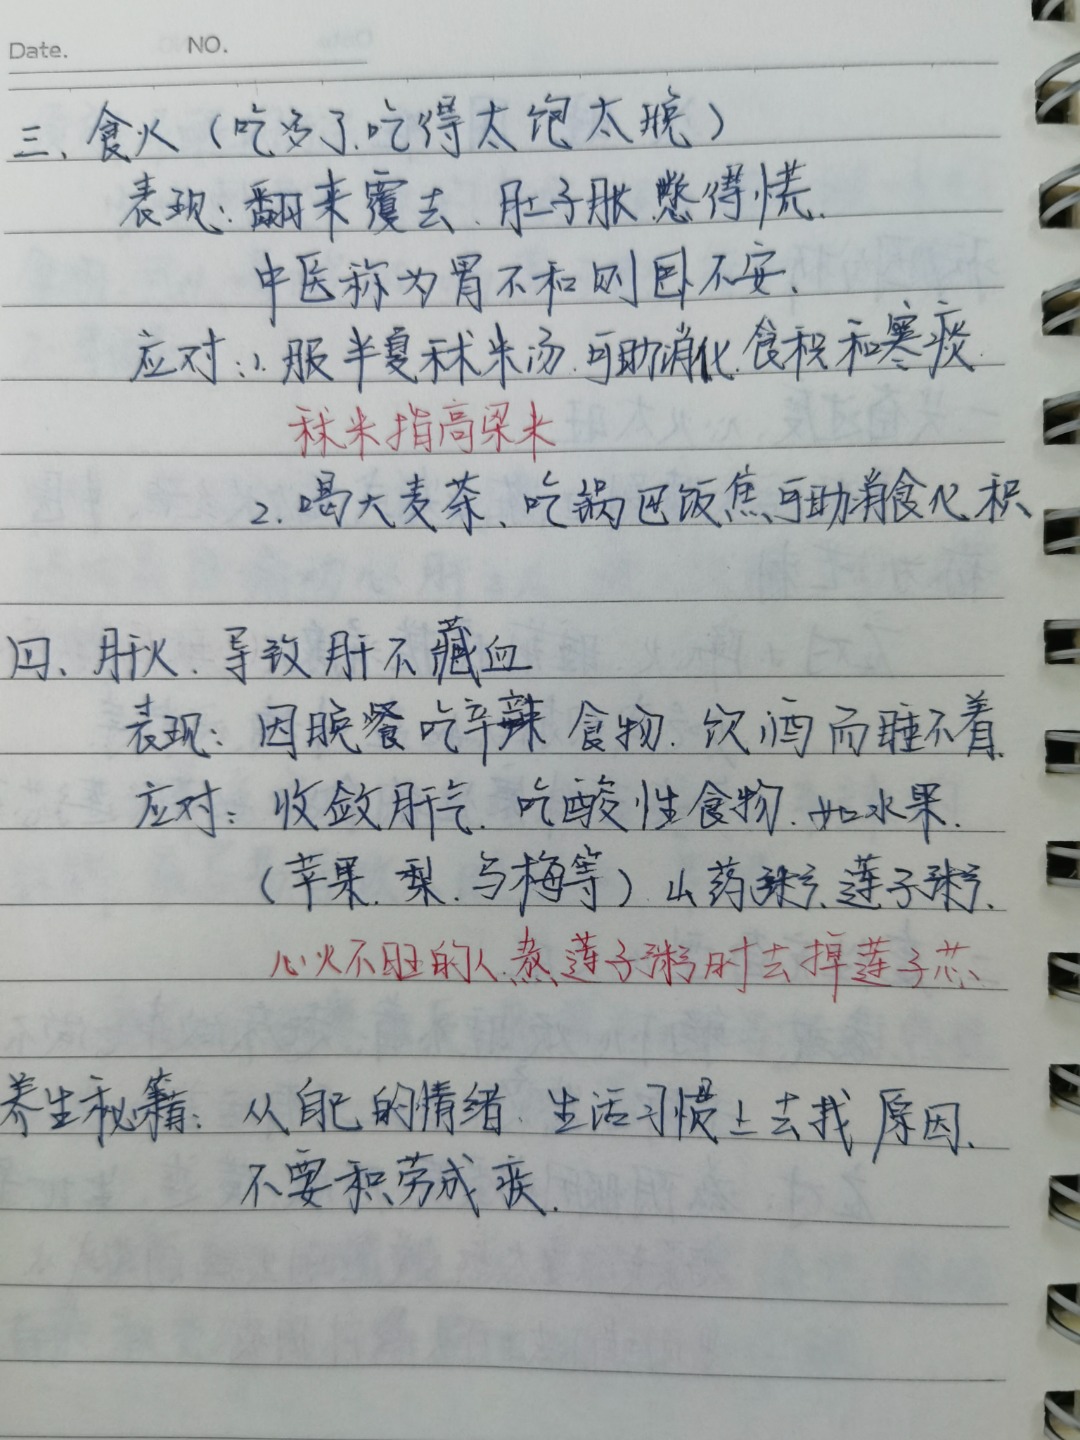 Date. NO.
三、食火（吃多了、吃得太饱太晚）
表现：翻来覆去、肚子胀憋得慌.
中医称为胃不和则卧不安.
应对：1. 服半夏秫米汤.可助消化.食积和寒痰.
秫米指高梁米
2. 喝大麦茶、吃锅巴饭焦可助消食化积
四、肝火.导致肝不藏血
表现：因晚餐吃辛辣食物.饮酒而睡不着.
应对：收敛肝气.吃酸性食物.如水果.
（苹果.梨.乌梅等）山药粥、莲子粥.
心火不旺的人.煮莲子粥时去掉莲子芯.
养生秘籍：从自己的情绪.生活习惯上去找原因.
不要积劳成疾.